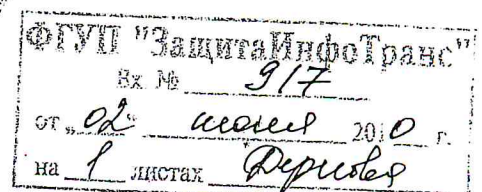 ФГУП "ЗащитаИнфоТранс"
Вх № 917
от „02“ июня 2010 г.
на 1 листах